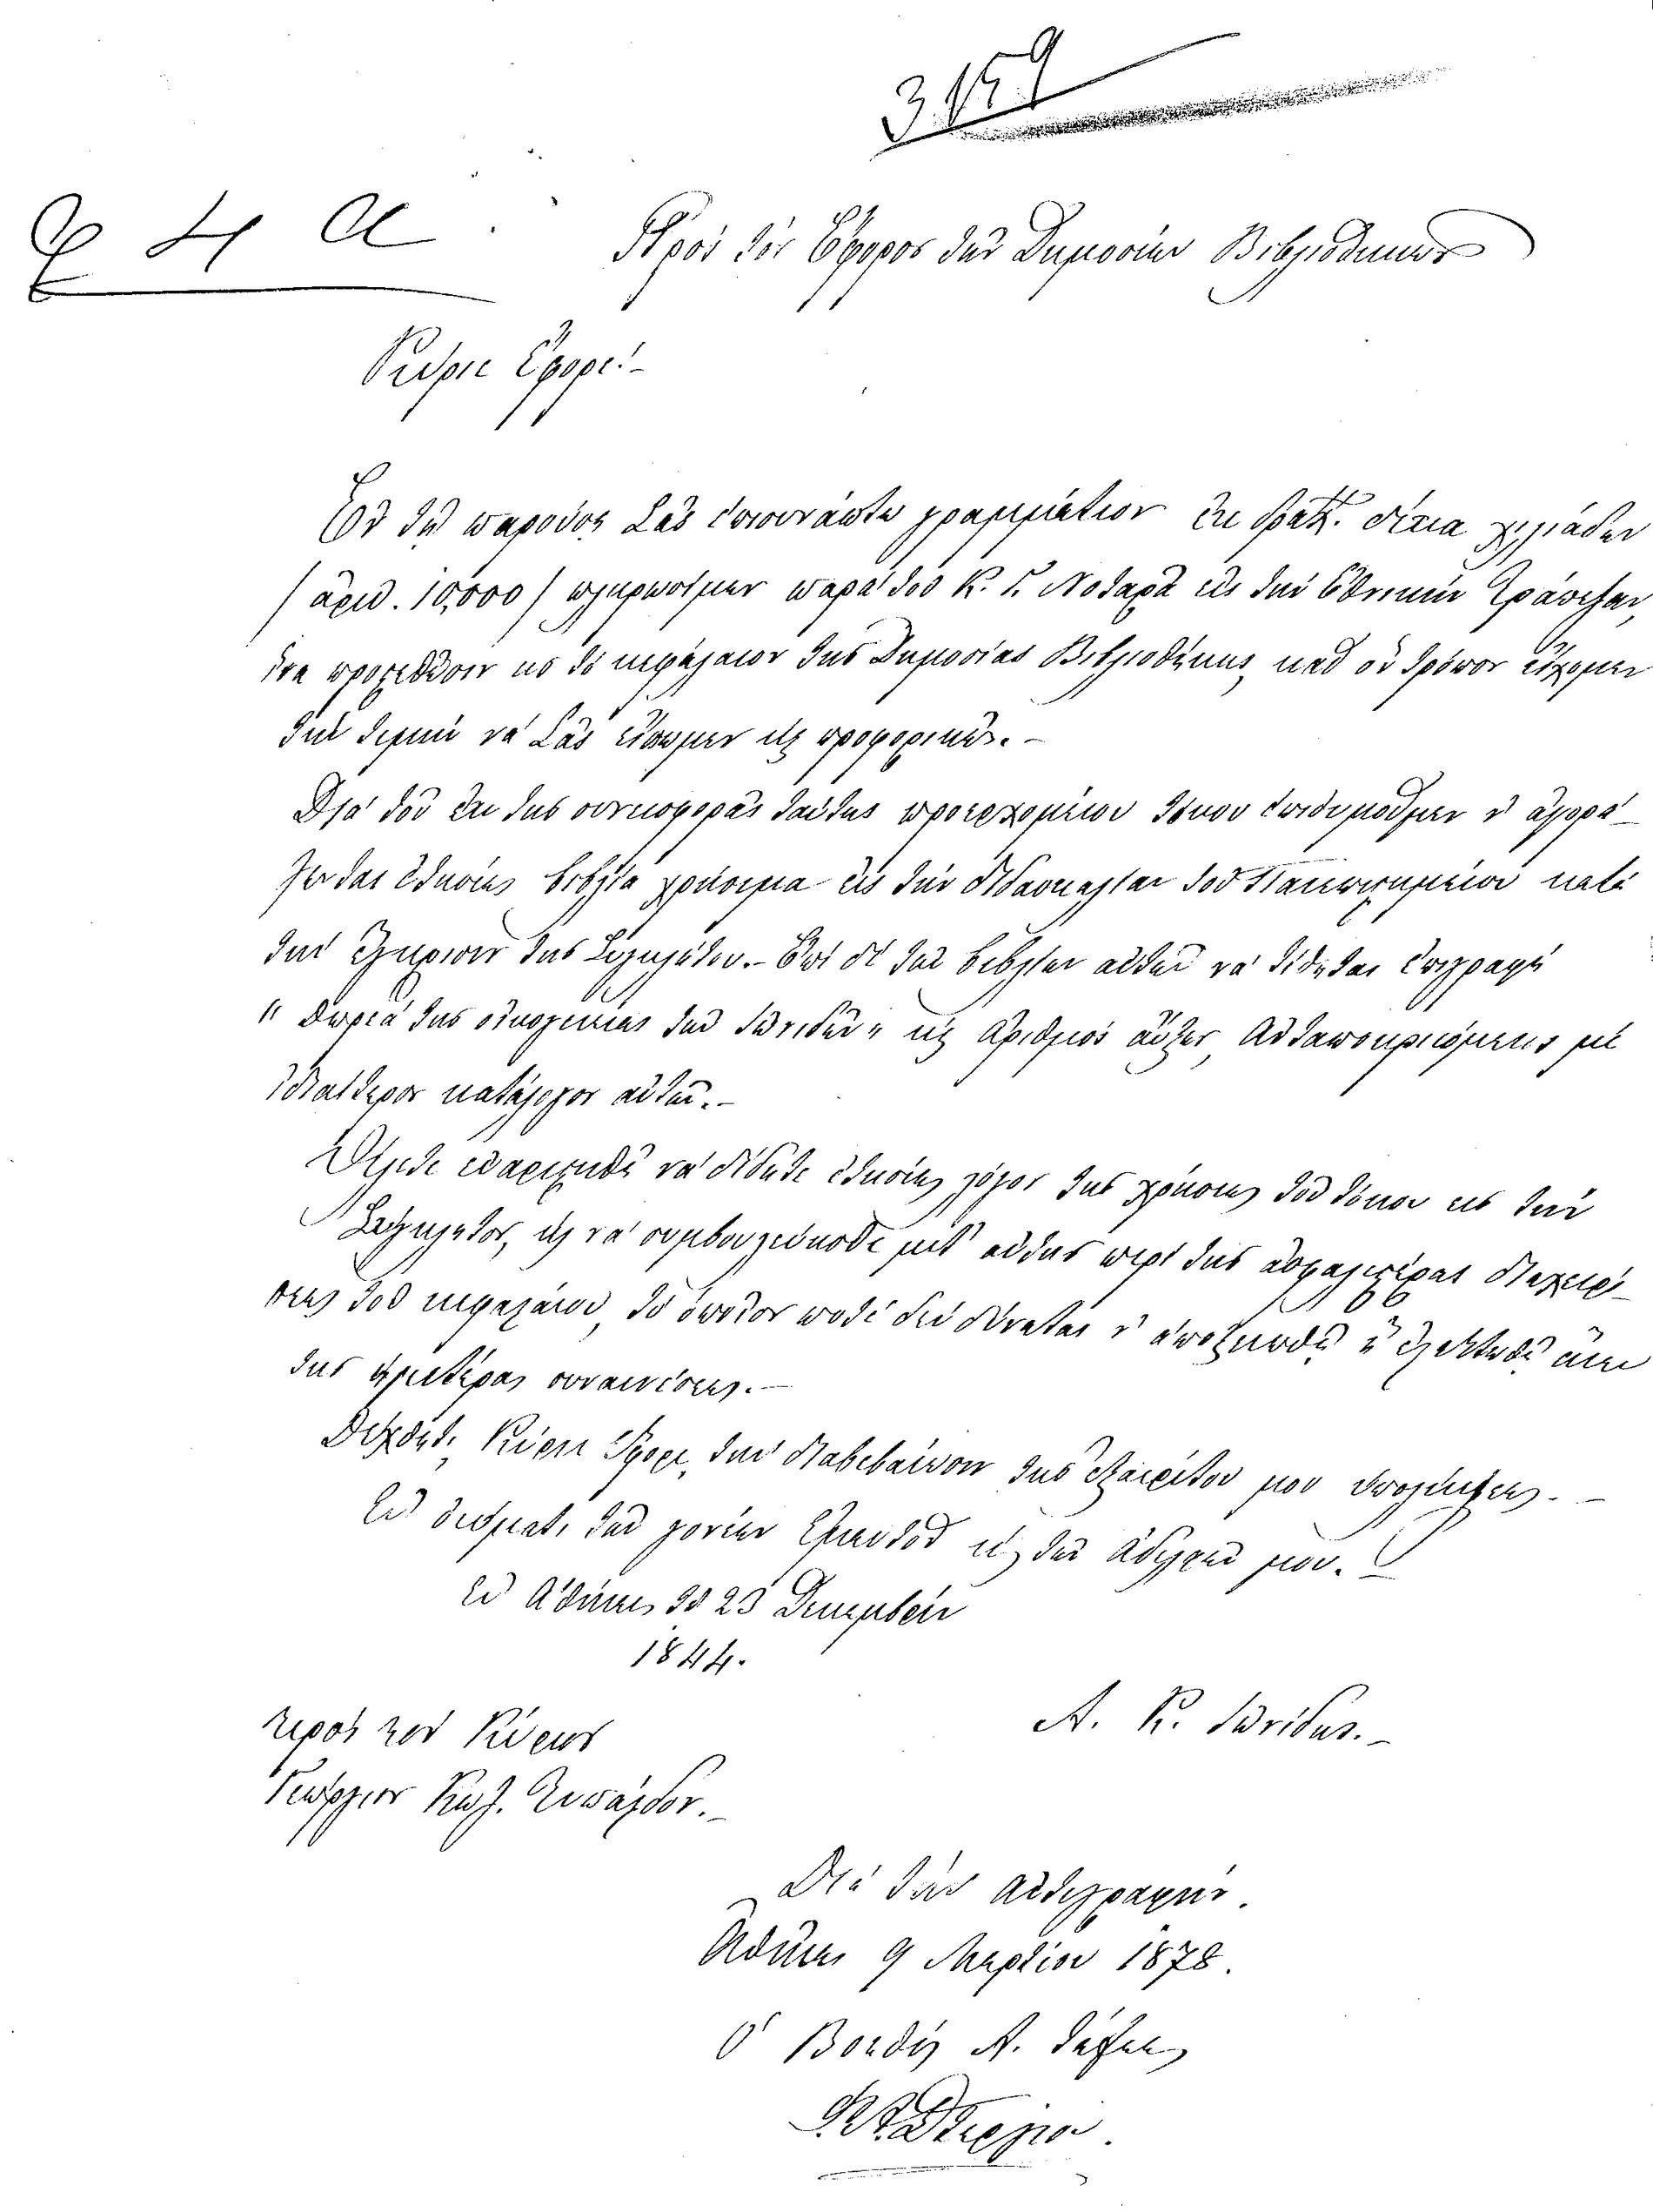 3159
Q 4 α.
Πρὸς τὸν Ἔφορον τῆς Δημοσίου Βιβλιοθήκης
Κύριε Ἔφορε!-
Ἐν τῇ παρούσῃ Σᾶς ἐπισυνάπτω γραμμάτιον ἐκ δραχ. δέκα χιλιάδων
/ ἀριθ. 10,000 / πληρωτέων παρὰ τοῦ Κ. Γ. Νοταρᾶ εἰς τὴν Ἐθνικὴν Τράπεζαν,
ἵνα προστεθῶσιν εἰς τὸ κεφάλαιον τῆς Δημοσίας Βιβλιοθήκης, καθ' ὃν τρόπον εἴχομεν
τὴν τιμὴν νὰ Σᾶς εἴπωμεν καὶ προφορικῶς.-
Διὰ τοῦ ἐκ τῆς συνεισφορᾶς ταύτης προερχομένου τόκου ἐπιθυμοῦμεν ν' ἀγορά-
ζωνται ἐτησίως βιβλία χρήσιμα εἰς τὴν διδασκαλίαν τοῦ Πανεπιστημείου κατὰ
τὴν ἔγκρισιν τῆς Συγκλήτου.- Ἐπὶ δὲ τῶν βιβλίων αὐτῶν νὰ τίθηται ἐπιγραφὴ
" Δωρεὰ τῆς οἰκογενείας τῶν Ἰωνιδῶν " καὶ ἀριθμὸς αὔξων, ἀνταποκρινόμενος μὲ
ἰδιαίτερον κατάλογον αὐτῶν.-
Θέλετε εὐαρεστηθῆ νὰ δίδητε ἐτησίως λόγον τῆς χρήσεως τοῦ τόκου εἰς τὴν
Σύγκλητον, καὶ νὰ συμβουλεύησθε μετ' αὐτῆς περὶ τῆς ἀσφαλεστέρας διαχειρί-
σεως τοῦ κεφαλαίου, τὸ ὁποῖον ποτὲ δὲν δύναται ν' ἀποξενωθῇ ἢ ἐλαττωθῇ ἄνευ
τῆς ἡμετέρας συναινέσεως.-
Δέχθητι, Κύριε Ἔφορε, τὴν διαβεβαίωσιν τῆς ἐξαιρέτου μου ὑπολήψεως.-
Ἐν ὀνόματι τῶν γονέων ἐμαυτοῦ καὶ τῶν ἀδελφῶν μου.-
Ἐν Ἀθήναις τὴν 23 Δεκεμβρίου
1844.
Α. Κ. Ἰωνίδης.-
πρὸς τὸν Κύριον
Γεώργιον Κωζ. Τυπάλδον.-
Διὰ τὴν ἀντιγραφήν.
Ἀθῆναι 9 Μαρτίου 1878.
Ὁ Βοηθὸς Α. τάξεως